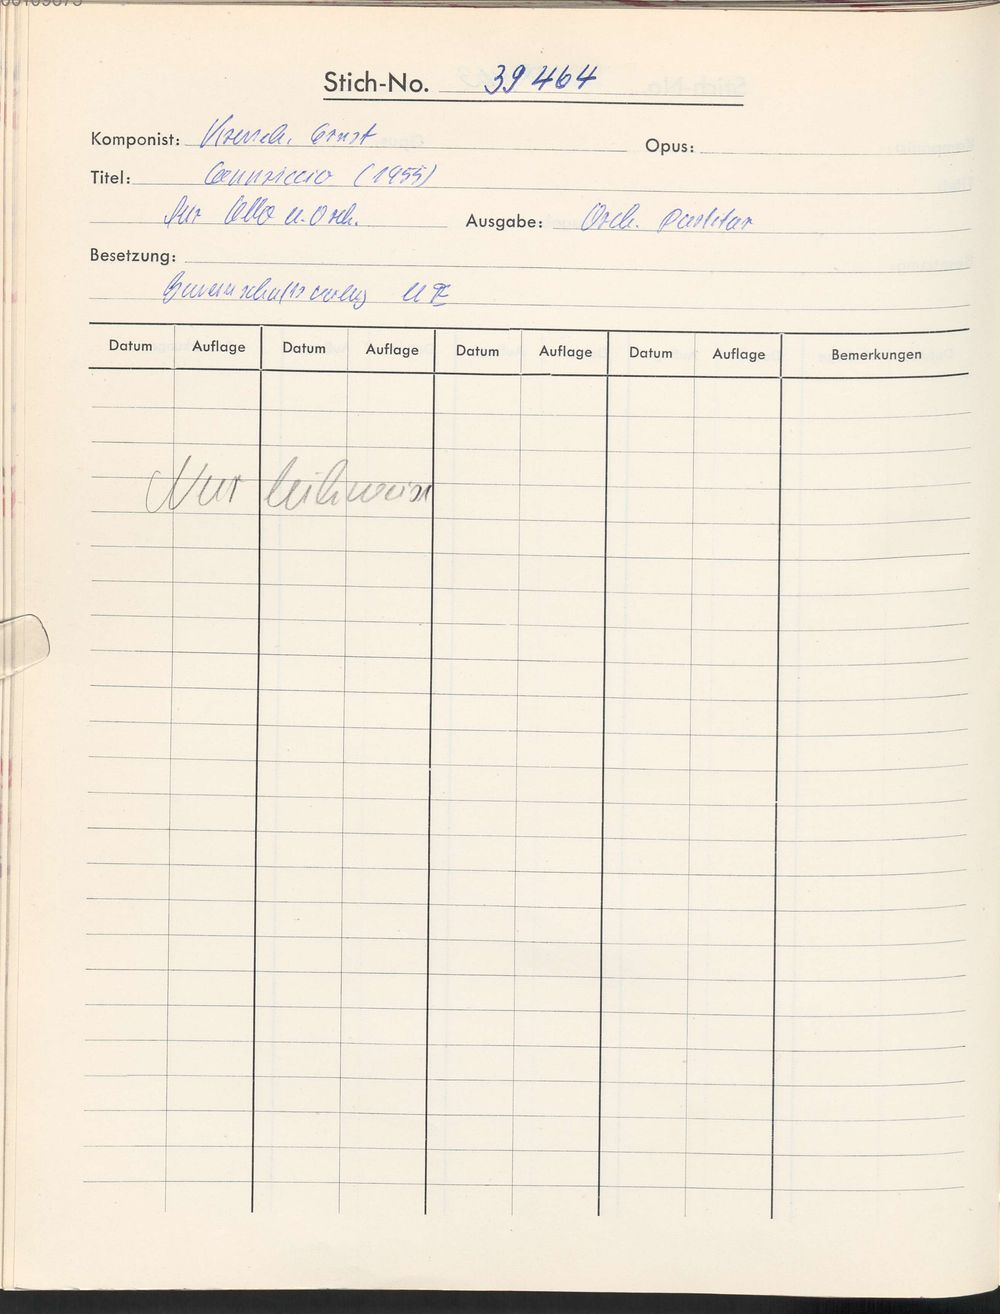 Stich-No. 39 464
Komponist: Krenek, Ernst Opus:
Titel: Capriccio (1955)
für Cello u. Orch. Ausgabe: Orch. Partitur
Besetzung:
Gemeinschaftsverlag UE
Datum Auflage Datum Auflage Datum Auflage Datum Auflage Bemerkungen
Nur leihweise